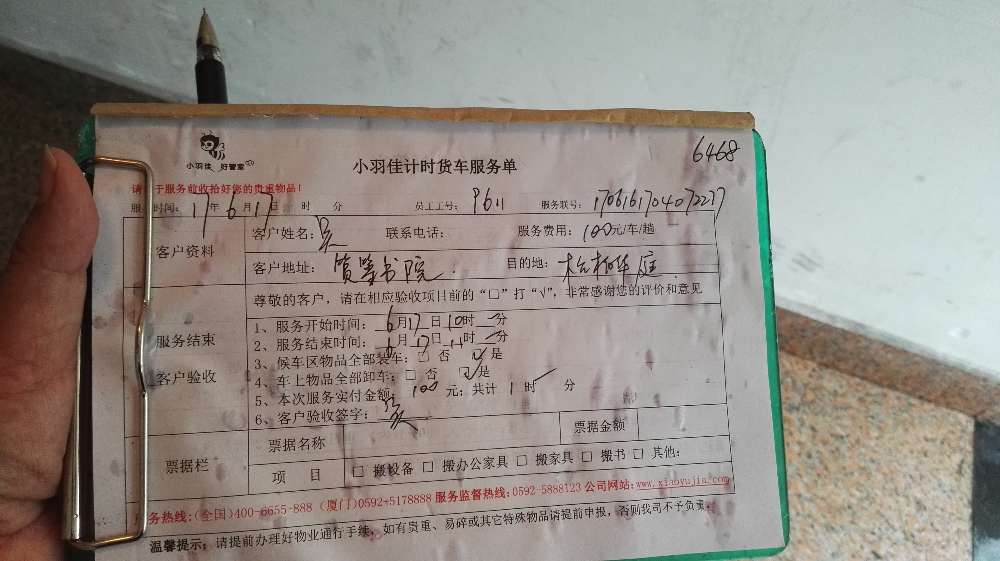 6468
小羽佳 好管家
小羽佳计时货车服务单
请于服务前收拾好您的贵重物品!
服务时间: 17年 6月 17日 时 分 员工工号: 9611 服务联号: 170616170407227
客户资料
客户姓名: 联系电话: 服务费用: 100元/车/趟
客户地址: 书院 目的地: 华庭
尊敬的客户,请在相应验收项目前的“□”打“√”,非常感谢您的评价和意见
服务结束
客户验收
1、服务开始时间: 6月17日10时 分
2、服务结束时间: 6月17日11时 分
3、候车区物品全部装车: □ 否 ☑是
4、车上物品全部卸车: □ 否 ☑是
5、本次服务实付金额: 100 元; 共计 1 时 分
6、客户验收签字:
票据栏
票据名称 票据金额
项 目 □ 搬设备 □ 搬办公家具 □ 搬家具 □ 搬书 □ 其他:
服务热线:(全国)400-6655-888 (厦门)0592+5178888 服务监督热线:0592-5888123 公司网站:www.xiaoyujia.com
温馨提示: 请提前办理好物业通行手续, 如有贵重、易碎或其它特殊物品请提前申报, 否则我司不予负责。